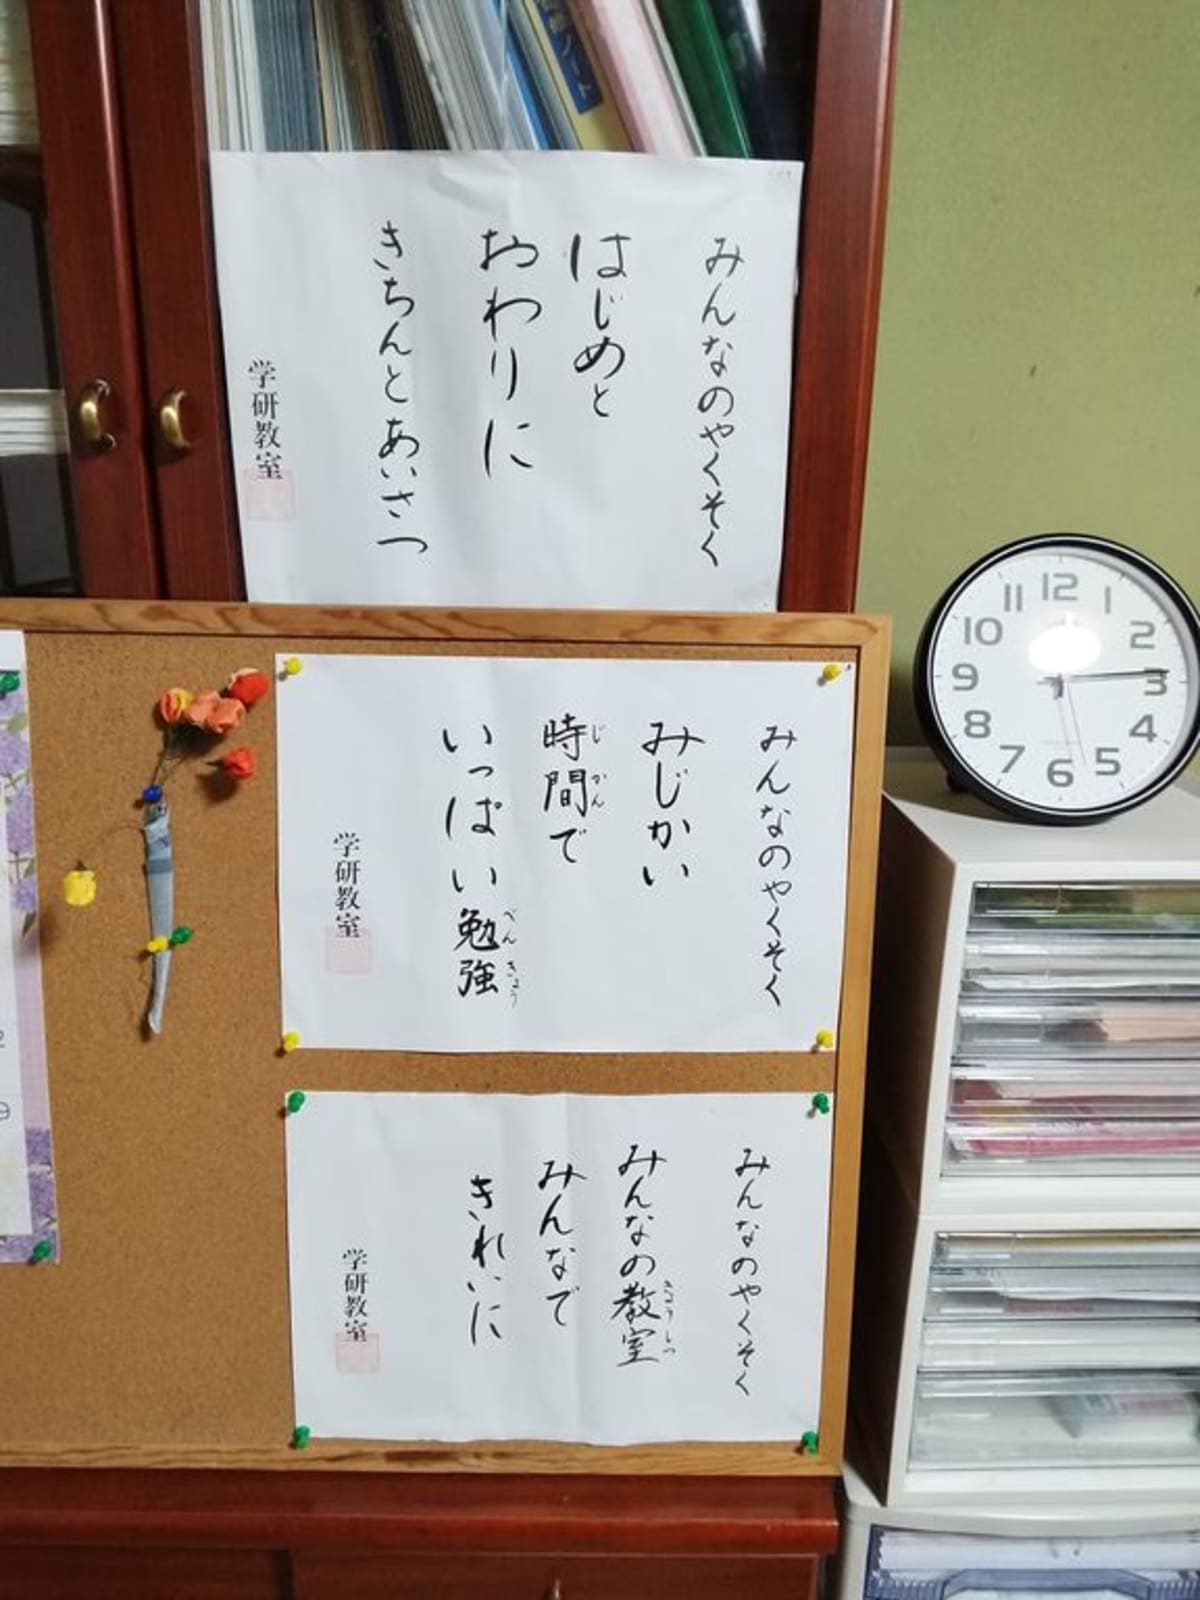 みんなのやくそく
はじめと
おわりに
きちんとあいさつ
学研教室
みんなのやくそく
みじかい
時間で
じかん
いっぱい勉強
べんきょう
学研教室
みんなのやくそく
みんなの教室
きょうしつ
みんなで
きれいに
学研教室
12
1
2
3
4
5
6
7
8
9
10
11
2
9